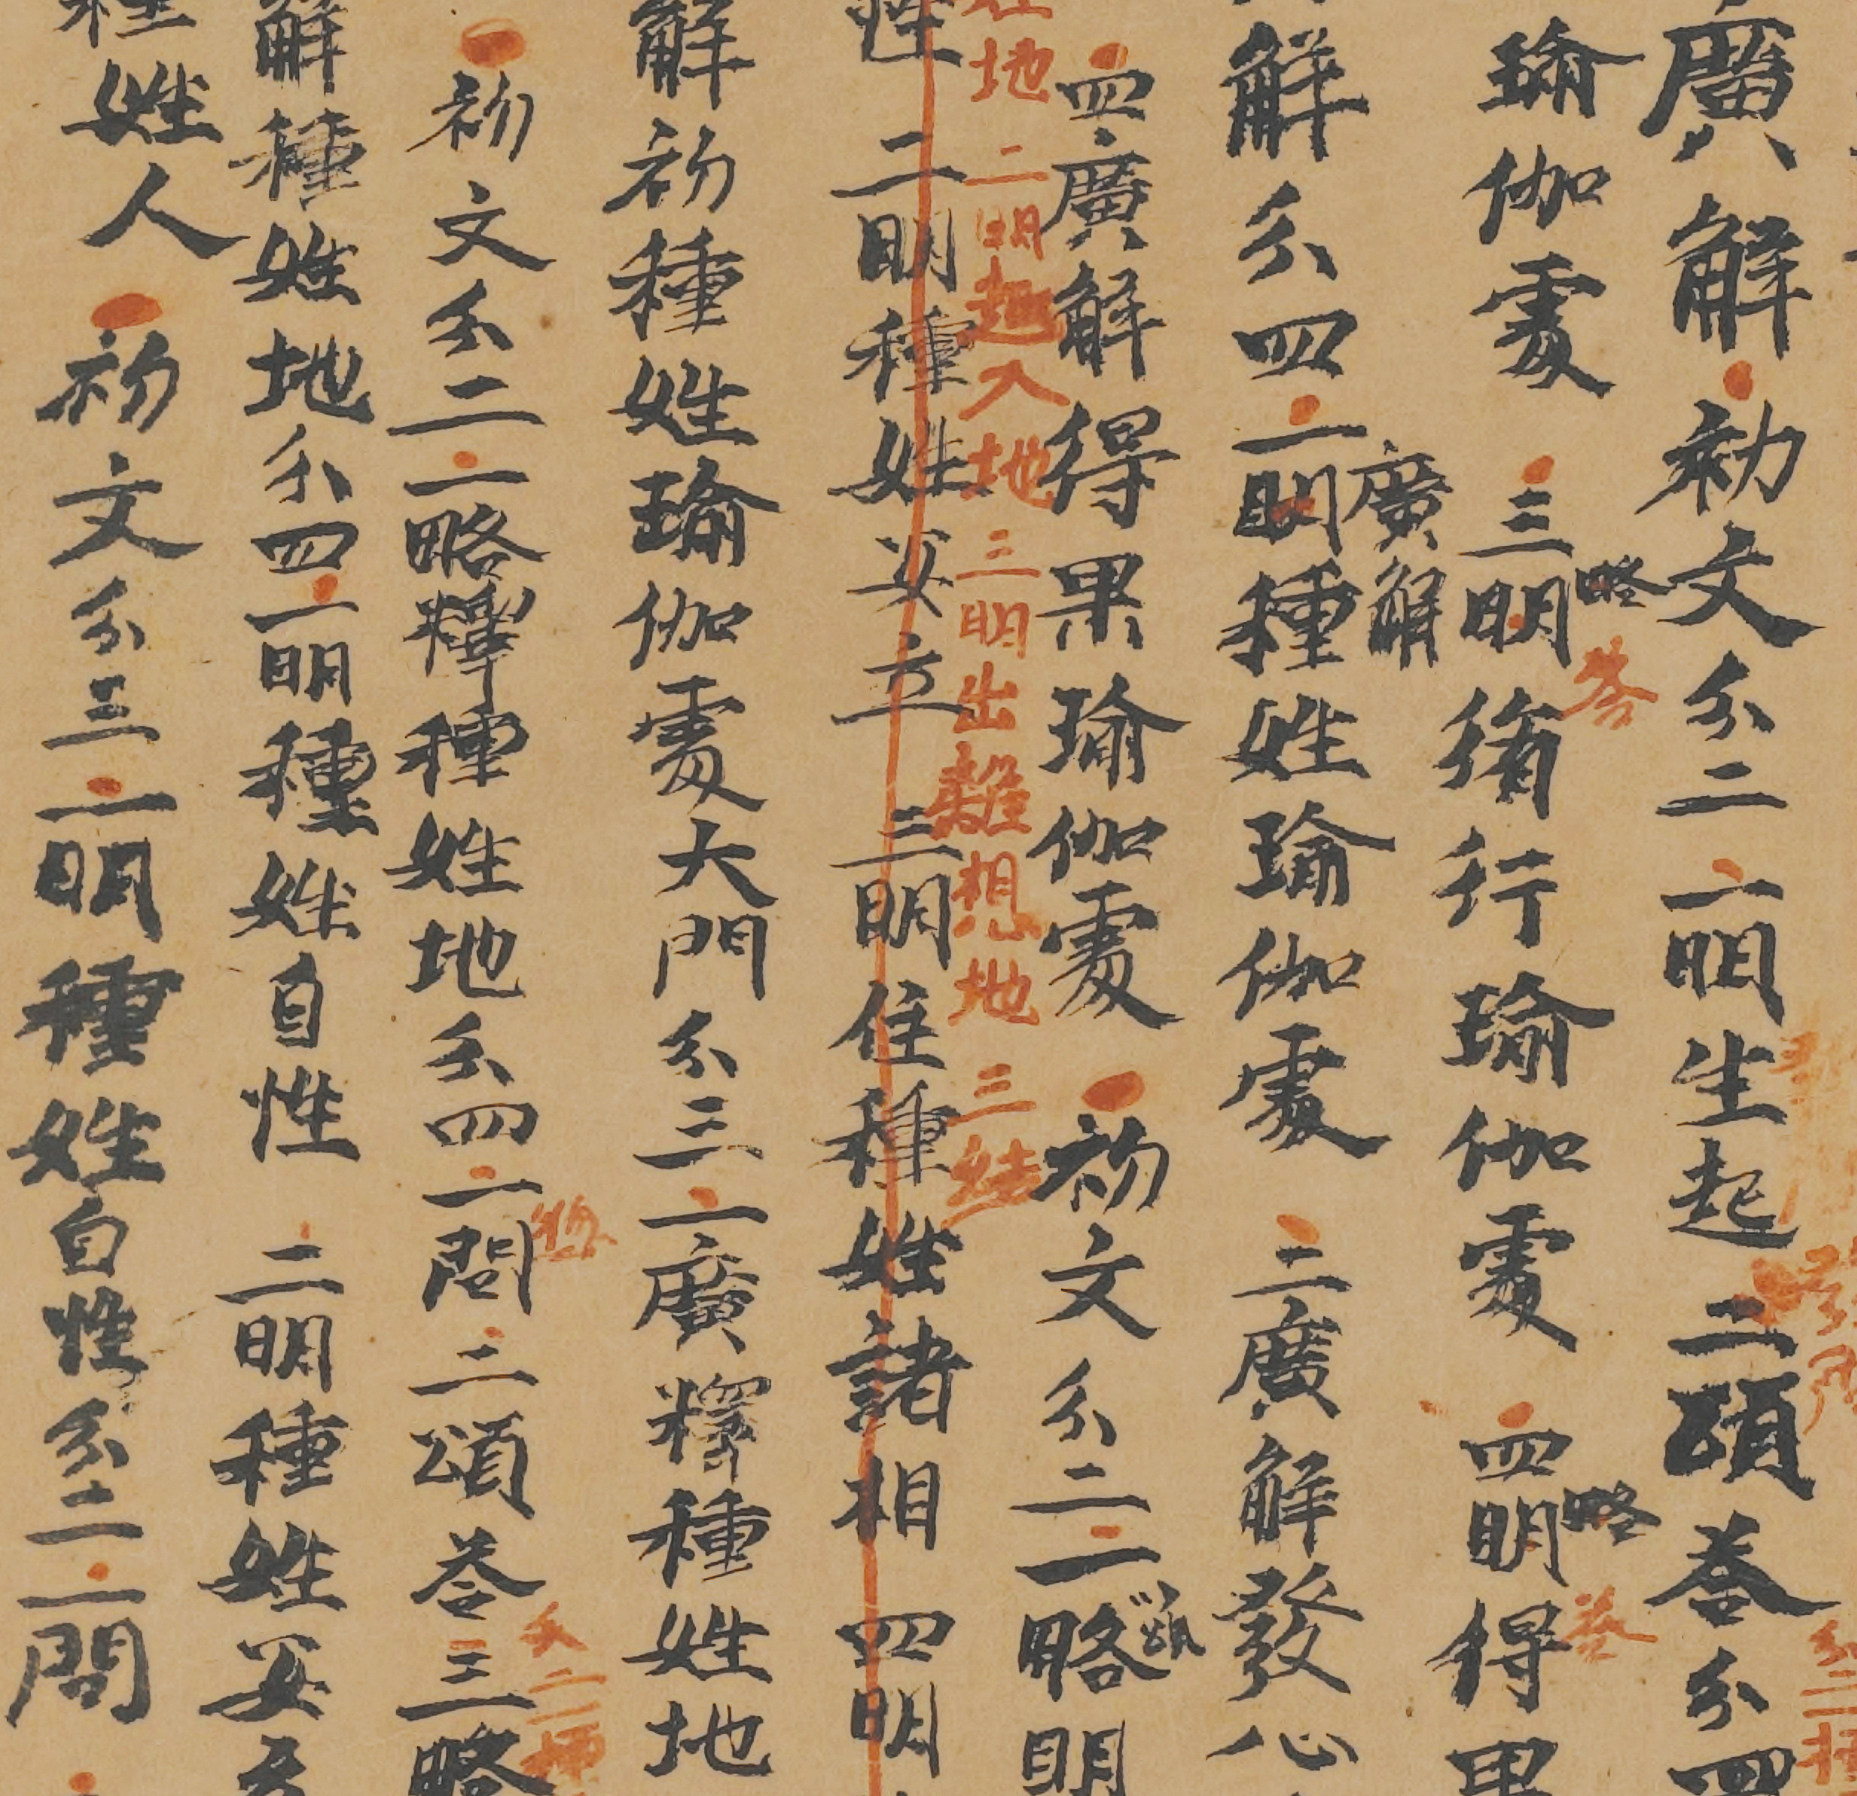 廣解 初文分二 一明生起 二頌荅分四
瑜伽處 三明脩行瑜伽處 四明得果
略
荅
略
荅
分二種
解分四 一明種姓瑜伽處 二廣解發心
廣解
四廣解得果瑜伽處 初文分二 一略明
地 二明趣入地 三明出離想地 三結
二明種姓安立 三明住種姓諸相 四明
解初種姓瑜伽處大門分三 一廣釋種姓地
初文分二 一略釋種姓地分四 一問 二頌荅 三略
解種姓地分四 一明種姓自性 二明種姓安立
種姓人 初文分三 一明種姓自性分二 一問